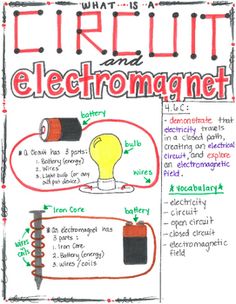 WHAT IS A
CIRCUIT
and
electromagnet
battery
bulb
wires
A Circuit has 3 parts:
1. Battery (energy)
2. Wires
3. Light bulb (or any
Iron Core
battery
wires
coils
An electromagnet has
3 parts:
1. Iron Core
2. Battery (energy)
3. Wires / coils
4.6C:
- demonstrate that
electricity travels
in a closed path,
creating an electrical
circuit, and explore
an electromagnetic
field.
Vocabulary
- electricity
- circuit
- open circuit
- closed circuit
- electromagnetic
field